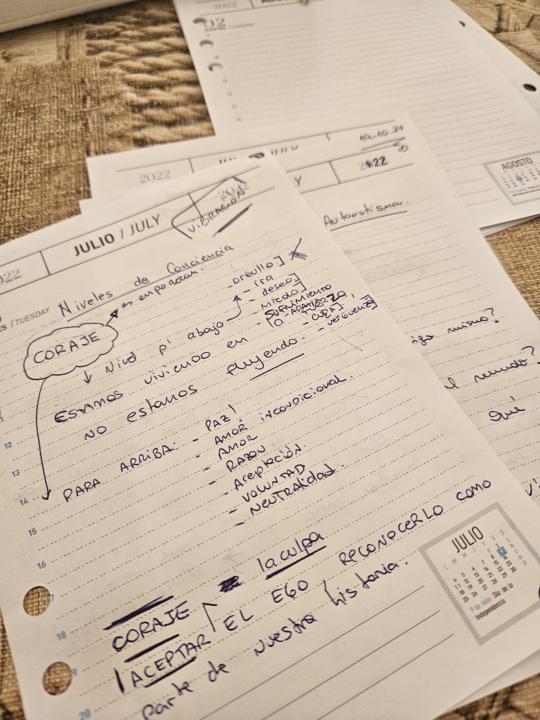 2022
02
AGOSTO
2022
2022
Autoestima.
mismo?
mundo?
Qué
2022
JULIO / JULY
VIBRACIÓN
TUESDAY
Niveles de Conciencia
es empoderar.
CORAJE
↓ Nivel p/ abajo
- orgullo]
- ira
- deseo]
- miedo]
- SUFRIMIENTO
- culpa]
- vergüenza]
Estamos viviendo en
NO estamos fluyendo.
PARA ARRIBA:
- PAZ!
- AMOR incondicional.
- AMOR
- RAZON
- Aceptación.
- VOLUNTAD
- Neutralidad.
11
12
13
14
15
16
17
18
20
la culpa
CORAJE
ACEPTAR EL EGO / RECONOCERLO como
parte de nuestra historia.
JULIO
9 de Julio: Día de la
Independencia